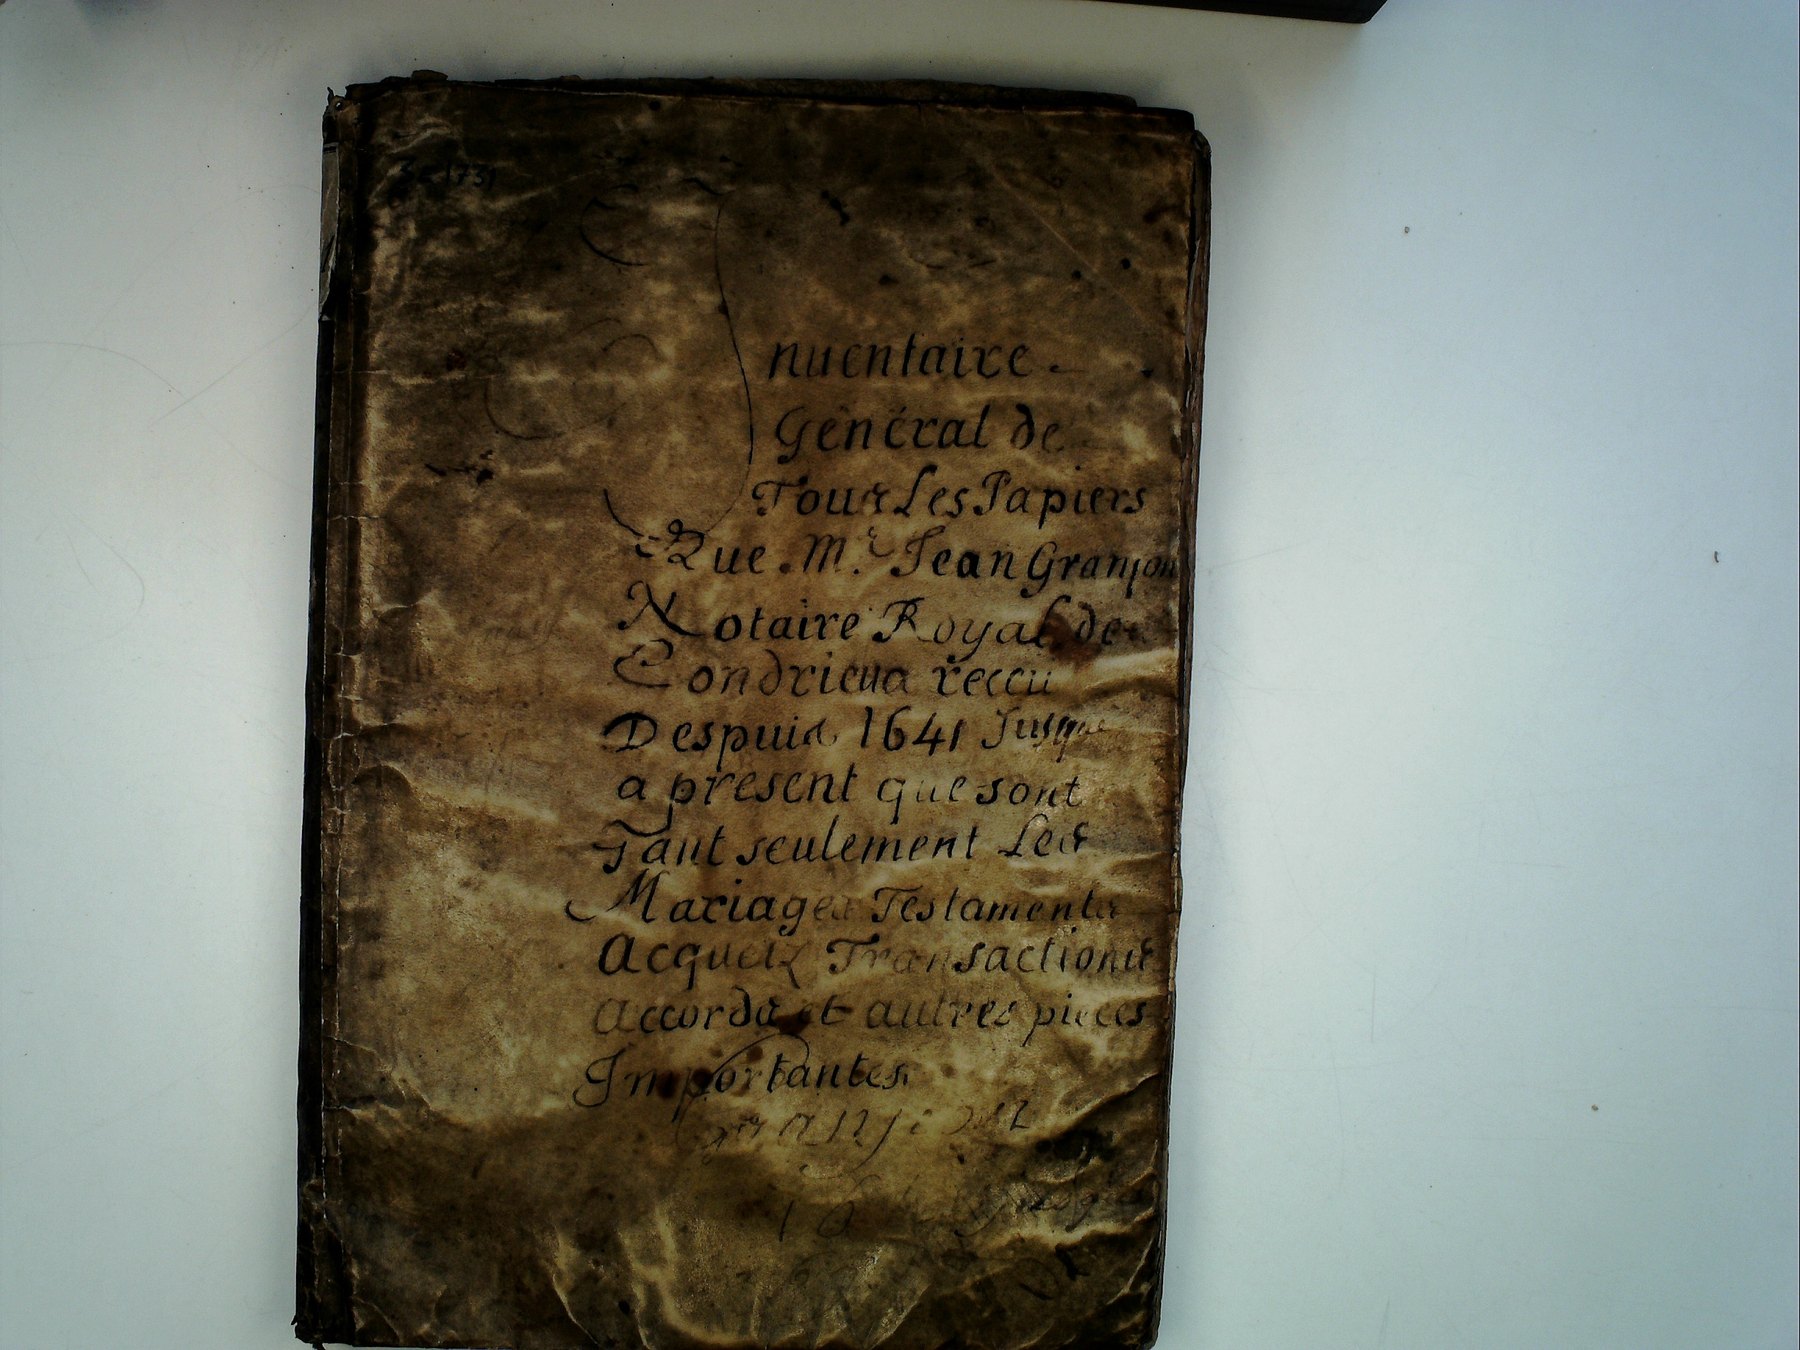 3E1731
Inuentaire
Général de
Tous Les Papiers
Que Mr. Jean Granjon
Notaire Royal de
Condrieus receu
Despuis 1641 Jusque
a present que sont
Tant seulement Les
Mariages Testaments
Acquetz Transactions
Accords et autres pieces
Importantes
Granjon